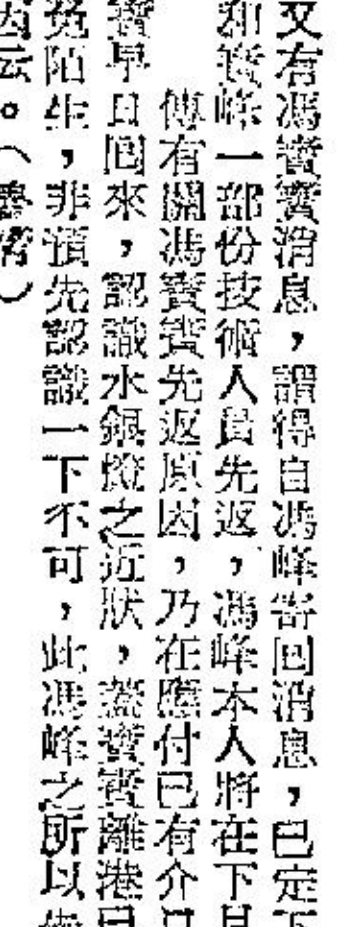 又有馮寶寶消息，謂得自馮峰寄回消息，已定下
和寶峰一部份技術人員先返，馮峰本人將在下
傳有關馮寶寶先返原因，乃在應付已有介
寶早日囘來，認識水銀燈之近狀，蓋寶寶離港已
免陌生，非預先認識一下不可，此馮峰之所以
因云。（魯濱）